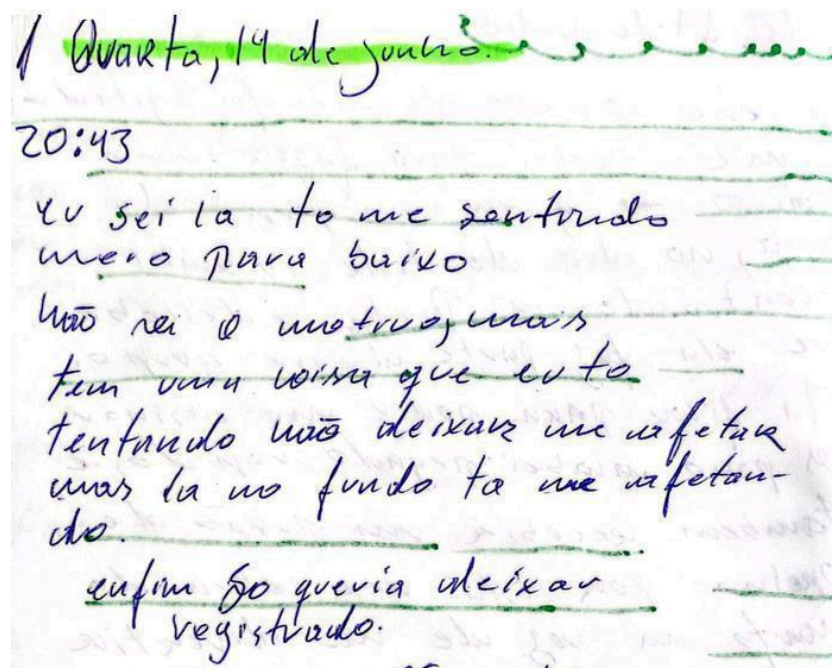 Quarta, 14 de junho.
20:43
eu sei la to me sentindo
meio para baixo
não sei o motivo, mais
tem uma coisa que eu to
tentando não deixar me afetar
mas la no fundo ta me afetan-
do.
enfim so queria deixar
registrado.